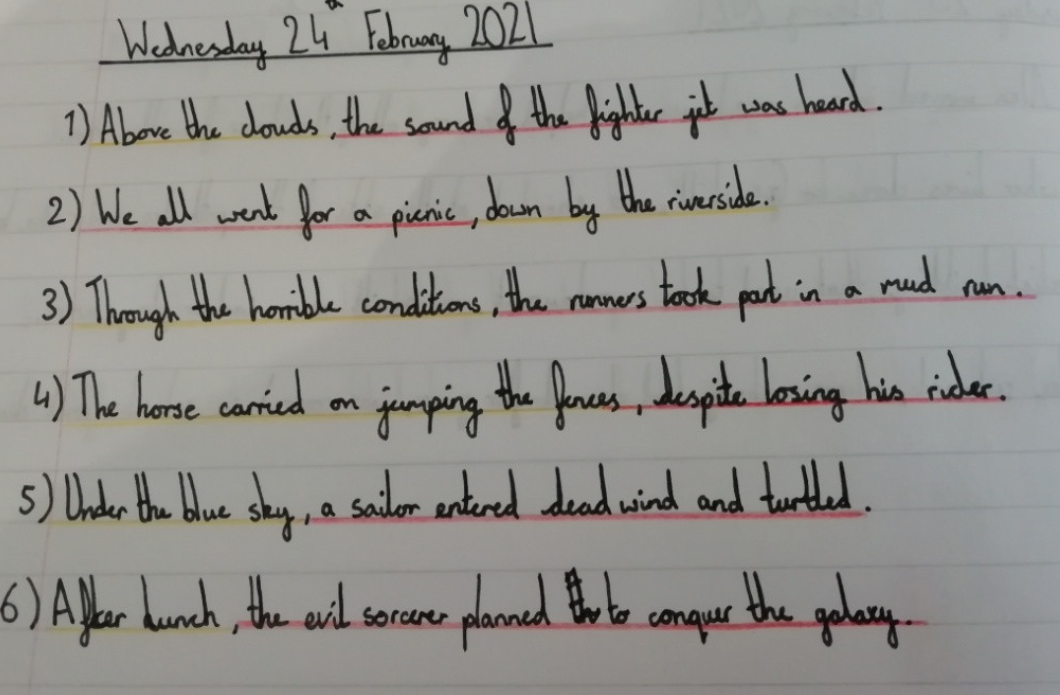 Wednesday 24th February 2021
1) Above the clouds, the sound of the fighter jet was heard.
2) We all went for a picnic, down by the riverside.
3) Through the horrible conditions, the runners took part in a mud run.
4) The horse carried on jumping the fences, despite losing his rider.
5) Under the blue sky, a sailor entered dead wind and turtled.
6) After lunch, the evil sorcerer planned to conquer the galaxy.